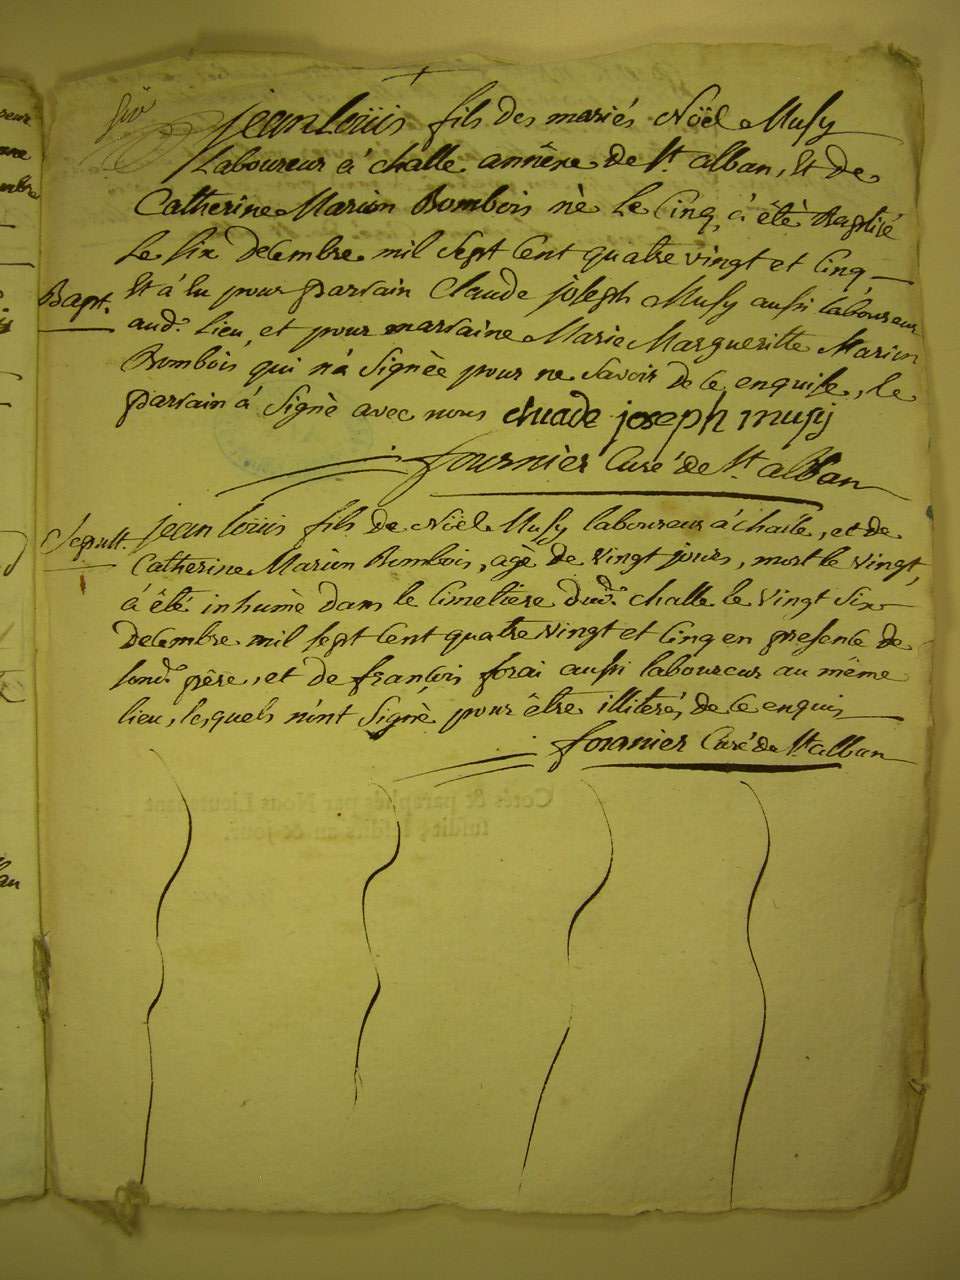 jean loüis fils des mariés Nöël Musy
Laboureur à challe annèxe de St. alban, Et de
Catherine Marion Bombois nè le Cinq, à étè Baptisé
Le Six decembre mil sept Cent quatre vingt et Cinq
Bapt. Et à Eu pour parrain Claude joseph Musy aussi laboureur
aud.t Lieu, et pour marraine Marie Margueritte Marion
Bombois qui n'a Signèe pour ne savoir de Ce enquise, le
parrain à Signè avec nous cluade joseph musy
fournièr Curé de St. alban
Sepult. jean loüis fils de Nöël Musy laboureur à challe, et de
Catherine Marion Bombois, agè de vingt jours, mort le vingt,
à étè inhumè dans le Cimetière dud.t challe le vingt Six
decembre mil sept Cent quatre vingt et Cinq en presence de
sond.t père, et de françois forai aussi laboureur au même
lieu, lesquels n'ont Signè pour être illiterés de Ce enquis
fournier Curé de St. alban
Cotés & paraphés par Nous Lieutenant
susdit, lesdits an & jour.